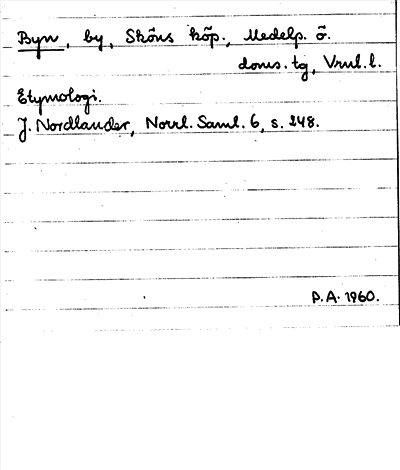 Byn, by, Sköns köp., Medelp. ö.
doms. tg, Vrnl. l.
Etymologi.
J. Nordlander, Norrl. Saml. 6, s. 248.
P.A. 1960.